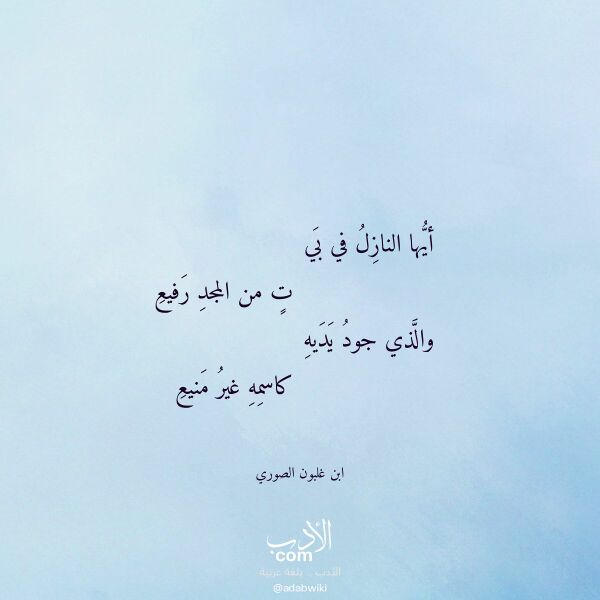 أيُّها النازِلُ في بَي
تٍ من المجدِ رَفيعِ
والَّذي جودُ يَدَيهِ
كاسمِهِ غيرُ مَنيعِ
ابن غلبون الصوري
الأدب
com
الأدب .. بلغة عربية
@adabwiki